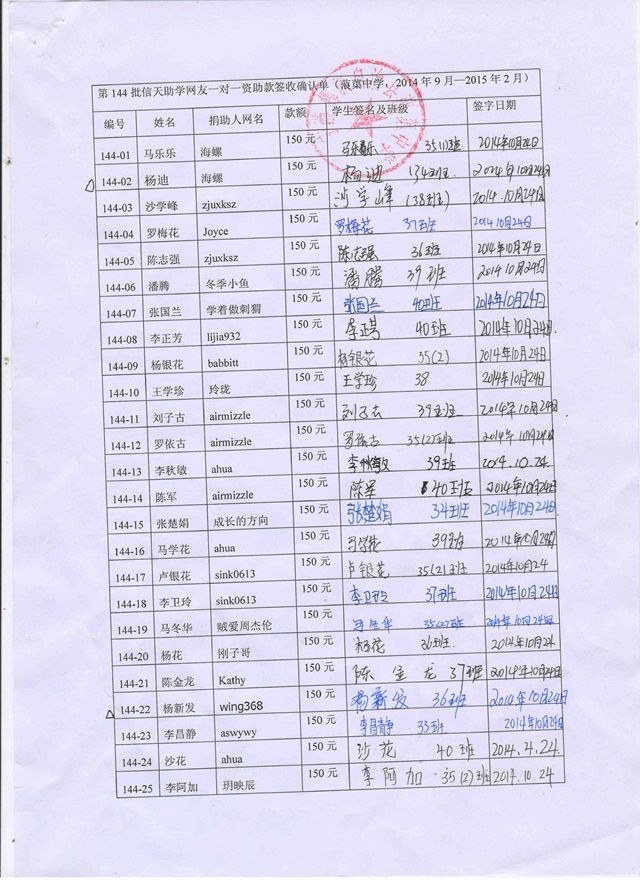 第 144 批信天助学网友一对一资助款签收确认单（蒗蕖中学，2014 年 9 月—2015 年 2 月）
编号 姓名 捐助人网名 款额 学生签名及班级 签字日期
144-01 马乐乐 海螺 150 元 马乐乐 35(1)班 2014年10月24日
144-02 杨迪 海螺 150 元 杨迪 134班 2014年10月24日
144-03 沙学峰 zjuxksz 150 元 沙学峰 (38班) 2014.10月24日
144-04 罗梅花 Joyce 150 元 罗梅花 37班 2014年10月24日
144-05 陈志强 zjuxksz 150 元 陈志强 36班 2014年10月24日
144-06 潘腾 冬季小鱼 150 元 潘腾 39班 2014年10月24日
144-07 张国兰 学着做刺猬 150 元 张国兰 40班 2014年10月24日
144-08 李正芳 lijia932 150 元 李正芳 40班 2014年10月24日
144-09 杨银花 babbitt 150 元 杨银花 35(2) 2014年10月24日
144-10 王学珍 玲珑 150 元 王学珍 38 2014年10月24日
144-11 刘子古 airmizzle 150 元 刘子古 39班 2014年10月24日
144-12 罗依古 airmizzle 150 元 罗依古 35(2)班 2014年10月24日
144-13 李秋敏 ahua 150 元 李秋敏 39班 2014.10.24.
144-14 陈军 airmizzle 150 元 陈军 40班 2014年10月24日
144-15 张楚娟 成长的方向 150 元 张楚娟 34班 2014年10月24日
144-16 马学花 ahua 150 元 马学花 39班 2014年10月24日
144-17 卢银花 sink0613 150 元 卢银花 35(2)班 2014年10月24
144-18 李卫玲 sink0613 150 元 李卫玲 37班 2014年10月24日
144-19 马冬华 贼爱周杰伦 150 元 马冬华 35(2)班 2014年10月24日
144-20 杨花 刚子哥 150 元 杨花 36班 2014年10月24
144-21 陈金龙 Kathy 150 元 陈金龙 37班 2014年10月24日
144-22 杨新发 wing368 150 元 杨新发 36班 2014年10月24日
144-23 李昌静 aswywy 150 元 李昌静 33班 2014年10月24日
144-24 沙花 ahua 150 元 沙花 40班 2014.4.24.
144-25 李阿加 玥映辰 150 元 李阿加 35(2)班 2014.10.24